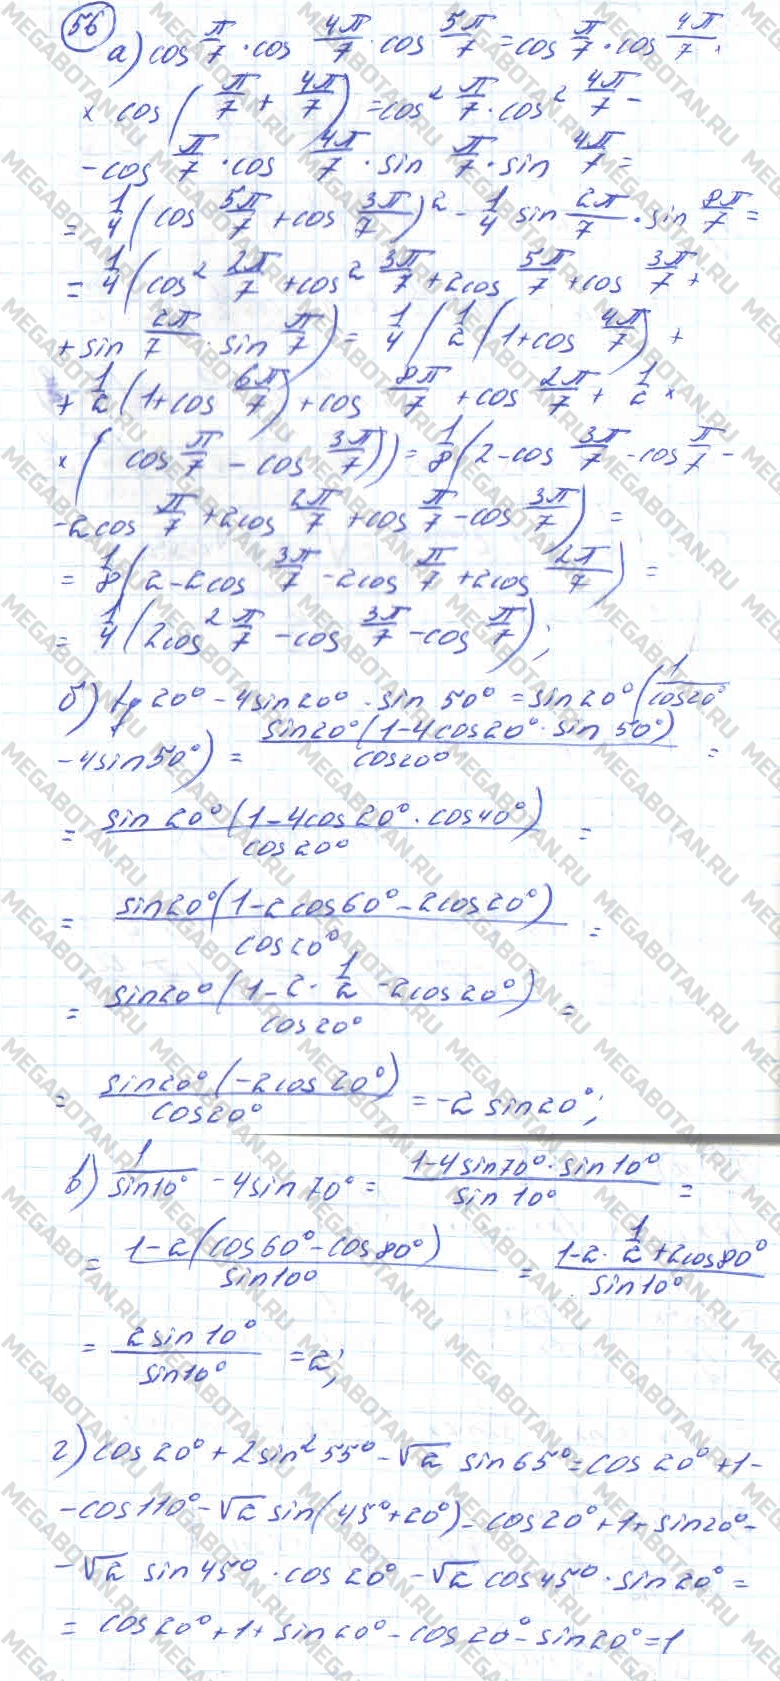 56
а) cos π/7 · cos 4π/7 · cos 5π/7 = cos π/7 · cos 4π/7 ·
× cos (π/7 + 4π/7) = cos² π/7 · cos² 4π/7 -
- cos π/7 · cos 4π/7 · sin π/7 · sin 4π/7 =
= 1/4 (cos 5π/7 + cos 3π/7)² - 1/4 sin 2π/7 · sin 8π/7 =
= 1/4 (cos² 2π/7 + cos² 3π/7 + 2cos 5π/7 + cos 3π/7 +
+ sin 2π/7 · sin π/7) = 1/4 (1/2 (1 + cos 4π/7) +
+ 1/2 (1 + cos 6π/7) + cos 8π/7 + cos 2π/7 + 1/2 ×
× (cos π/7 - cos 3π/7)) = 1/8 (2 - cos 3π/7 - cos π/7 -
- 2cos π/7 + 2cos 2π/7 + cos π/7 - cos 3π/7) =
= 1/8 (2 - 2cos 3π/7 - 2cos π/7 + 2cos 2π/7) =
= 1/4 (2cos² π/7 - cos 3π/7 - cos π/7);
б) tg 20° - 4sin 20° · sin 50° = sin 20° (1/cos 20°
- 4sin 50°) = sin 20° (1 - 4cos 20° · sin 50°)/cos 20° =
= sin 20° (1 - 4cos 20° · cos 40°)/cos 20° =
= sin 20° (1 - 2cos 60° - 2cos 20°)/cos 20° =
= sin 20° (1 - 2 · 1/2 - 2cos 20°)/cos 20° =
= sin 20° (-2cos 20°)/cos 20° = -2 sin 20°;
в) 1/sin 10° - 4sin 70° = 1 - 4sin 70° · sin 10°/sin 10° =
= 1 - 2(cos 60° - cos 80°)/sin 10° = 1 - 2 · 1/2 + 2cos 80°/sin 10°
= 2 sin 10°/sin 10° = 2;
г) cos 20° + 2sin² 55° - √2 sin 65° = cos 20° + 1 -
- cos 110° - √2 sin (45° + 20°) = cos 20° + 1 + sin 20° -
- √2 sin 45° · cos 20° - √2 cos 45° · sin 20° =
= cos 20° + 1 + sin 20° - cos 20° - sin 20° = 1
MEGABOTAN.RU